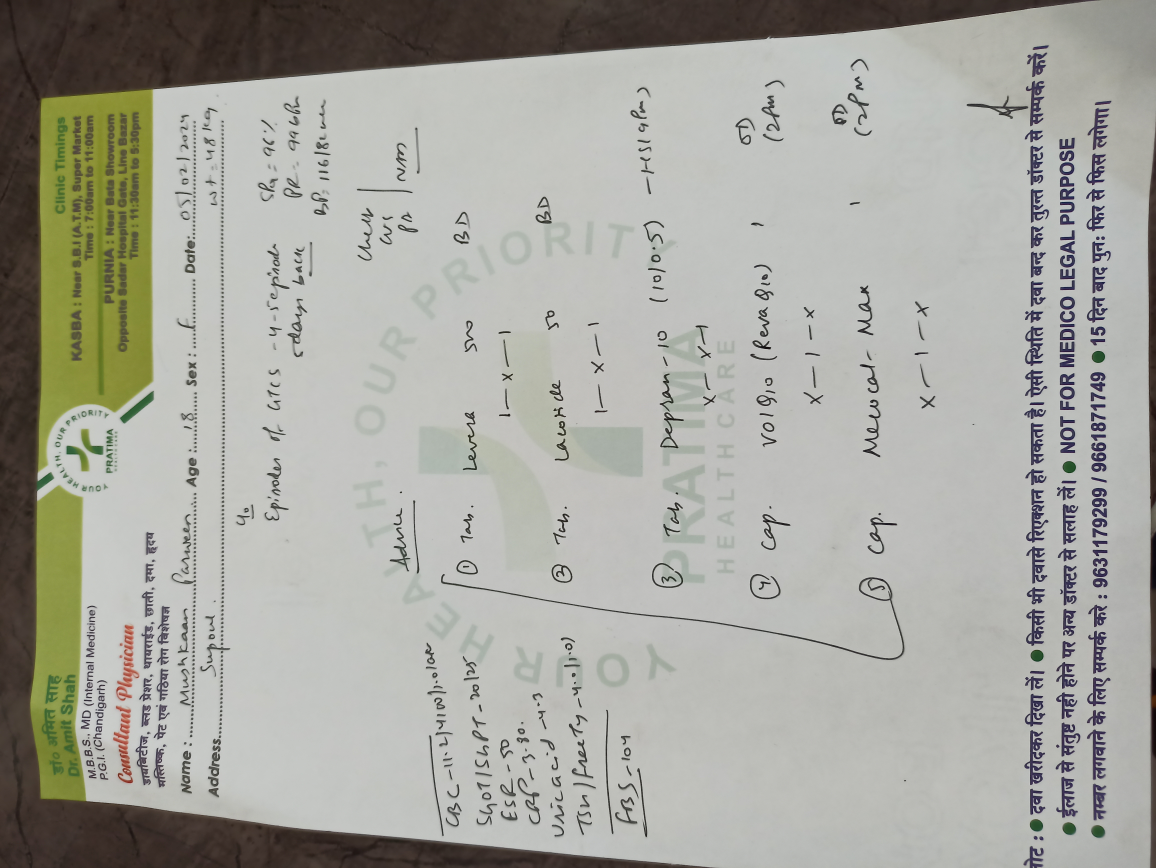 डा० अमित साह
Dr. Amit Shah
M.B.B.S., MD (Internal Medicine)
P.G.I. (Chandigarh)
Consultant Physician
डायबिटीज, ब्लड प्रेशर, थायराईड, छाती, दमा, हृदय
मस्तिष्क, पेट एवं गठिया रोग विशेषज्ञ
YOUR HEALTH, OUR PRIORITY
PRATIMA
Clinic Timings
KASBA : Near S.B.I (A.T.M), Super Market
Time : 7:00am to 11:00am
PURNIA : Near Bata Showroom
Opposite Sadar Hospital Gate, Line Bazar
Time : 11:30am to 5:30pm
Name : Mushkaan Parween Age : 18 Sex : F Date: 05/02/2024
Address Supoul wt - 48 kg
Episodes of GTCS - 4-5 episode
5 days back
SPO2 = 96%
PR - 99
BP: 116/8
Chest
CVS
PA
NM
Advice.
CBC - 11.2/4100/
SGOT/SGPT - 20/25
ESR - 50
CRP - 3.80.
Uric acid - 4.3
TSH/FreeT4 - 4.0/1.0)
FBS - 104
① Tab. Levera 500 BD
1 — x — 1
② Tab. Lacoside 50 BD
1 — x — 1
③ Tab. Depsan - 10 (10/0.5) — HS (9Pm)
x — x — 1
④ Cap. Volg10 (Reva G10) 1 OD (2Pm)
x — 1 — x
⑤ Cap. Mecocal - Max 1 OD (2Pm)
x — 1 — x
YOUR HEALTH, OUR PRIORITY
PRATIMA
HEALTH CARE
नोट : ● दवा खरीदकर दिखा लें। ● किसी भी दवासे रिएक्शन हो सकता है। ऐसी स्थिति में दवा बन्द कर तुरन्त डॉक्टर से सम्पर्क करें।
● ईलाज से संतुष्ट नही होने पर अन्य डॉक्टर से सलाह लें। ● NOT FOR MEDICO LEGAL PURPOSE
● नम्बर लगवाने के लिए सम्पर्क करे : 9631179299 / 9661871749 ● 15 दिन बाद पुन: फिर से फिस लगेगा।